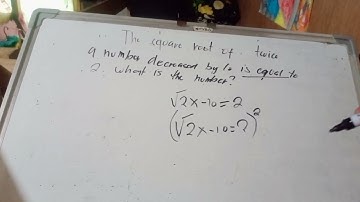 The square root of twice
a number decreased by 10 is equal to
2. what is the number?
√2x-10=2
(√2x-10=2)²